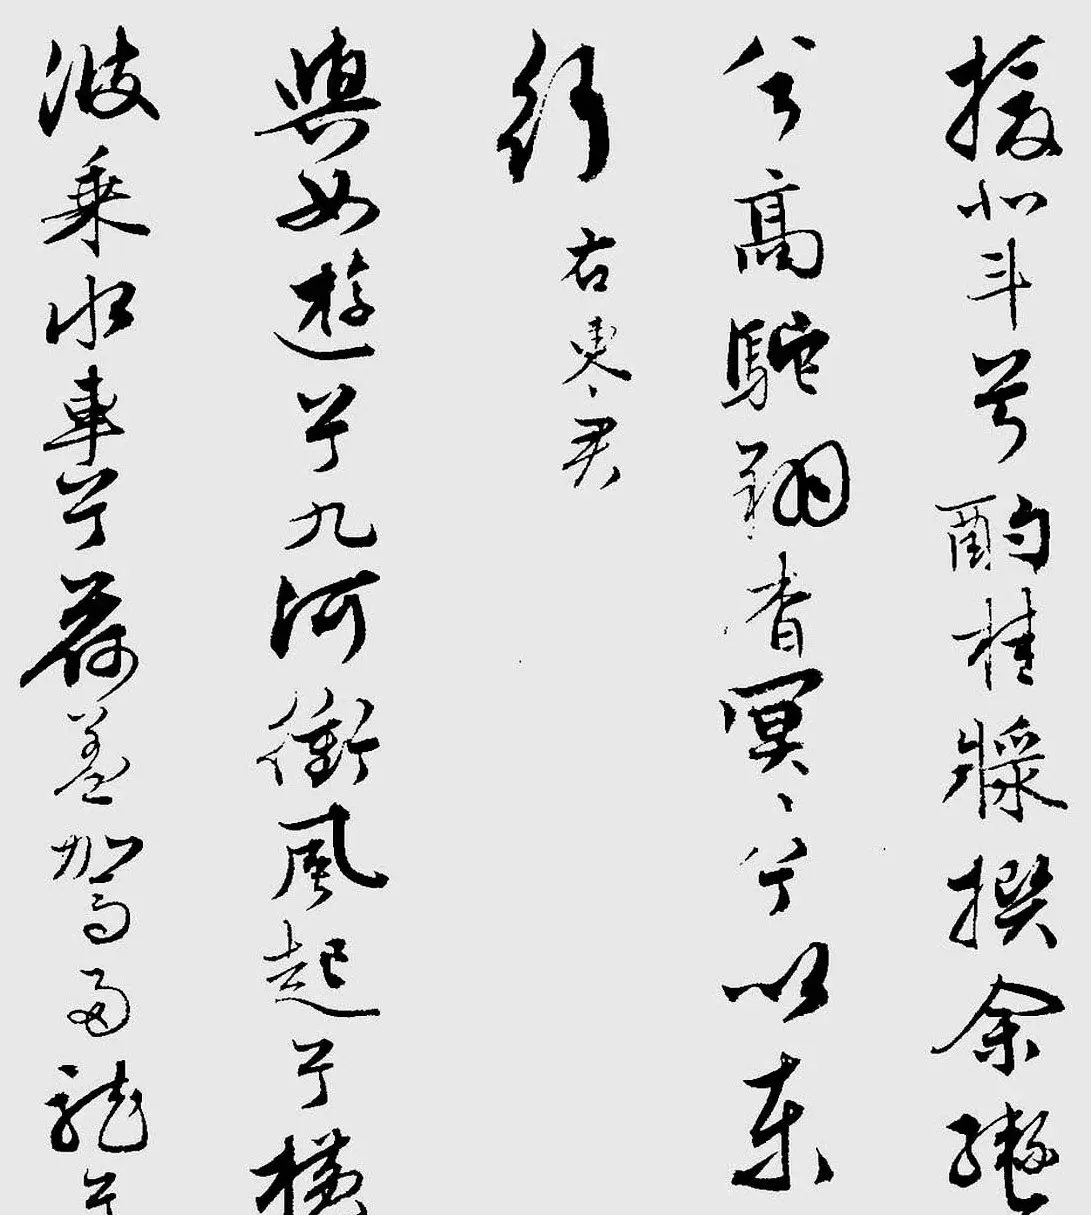 援北斗兮酌桂漿撰余轡
兮高駝翔杳冥〻兮以東
行
右東君
與女遊兮九河衝風起兮橫
波乘水車兮荷蓋駕兩龍兮